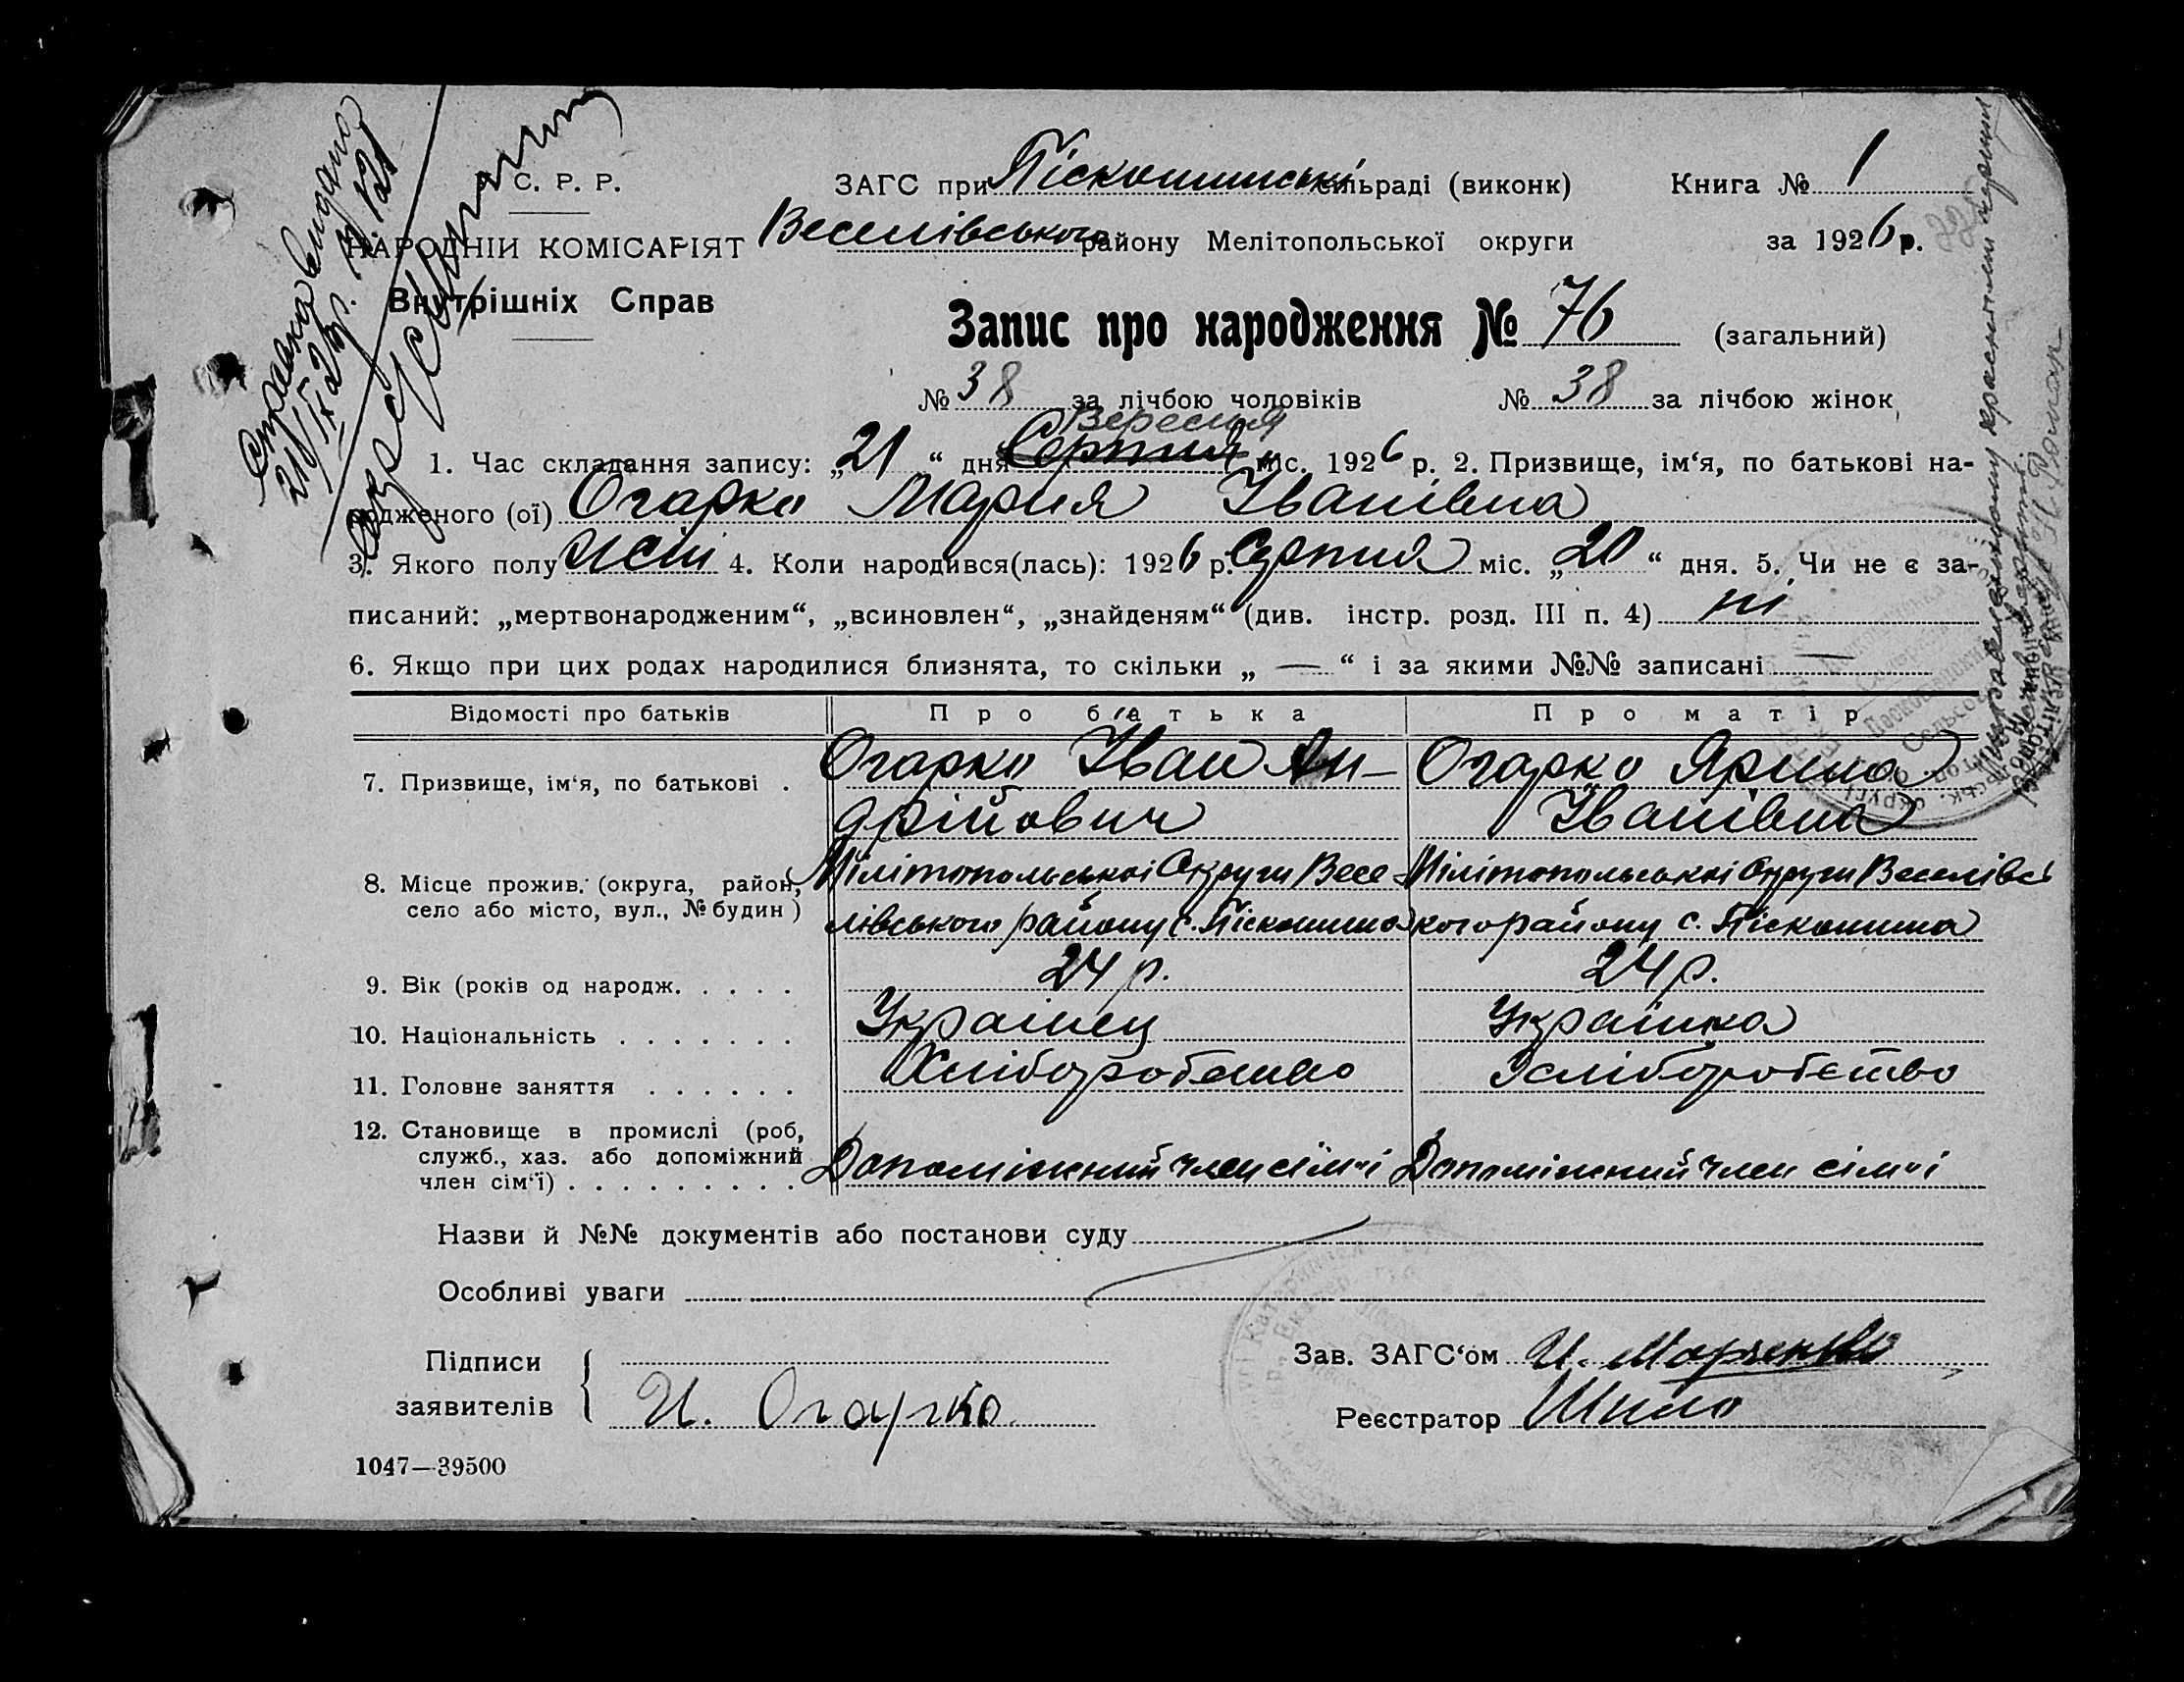 Справка видана
21/IX 26 р. № 121
С. Р. Р.
НАРОДНІЙ КОМІСАРІЯТ
Внутрішніх Справ
ЗАГС при Піскошинські сільраді (виконк) Книга № 1
Веселівського району Мелітопольської округи за 1926 р.
Запис про народження № 76 (загальний)
№ 38 за лічбою чоловіків № 38 за лічбою жінок
Вересня
1. Час складання запису: „21“ дня Серпня міс. 1926 р. 2. Призвище, ім‘я, по батькові на-
родженого (ої) Огарко Мария Іванівна
3. Якого полу жін 4. Коли народився(лась): 1926 р. Серпня міс. „20“ дня. 5. Чи не є за-
писаний: „мертвонародженим“, „всиновлен“, „знайденям“ (див. інстр. розд. III п. 4) ні
6. Якщо при цих родах народилися близнята, то скільки „ — “ і за якими №№ записані —
Відомості про батьків Про батька Про матір
7. Призвище, ім‘я, по батькові . Огарко Іван Ан- Огарко Ярина
дрійович Іванівна
8. Місце прожив. (округа, район, Мілітопольськоі Округи Весе- Мілітопольськоі Округи Веселівсь
село або місто, вул., № будин) лівського району с. Піскошина кого району с. Піскошина
9. Вік (років од народж. . . . . 24 р. 24 р.
10. Національність . . . . . . . Украінец Украінка
11. Головне заняття . . . . . . Хліборобство Хліборобство
12. Становище в промислі (роб,
служб., хаз. або допоміжний
член сім‘ї) . . . . . . . . . Допоміжний член сім'і Допоміжний член сім'і
Назви й №№ документів або постанови суду
Особливі уваги
Підписи
заявителів И. Огарко
Зав. ЗАГС‘ом И. Марченко
Реєстратор Шило
1047—39500